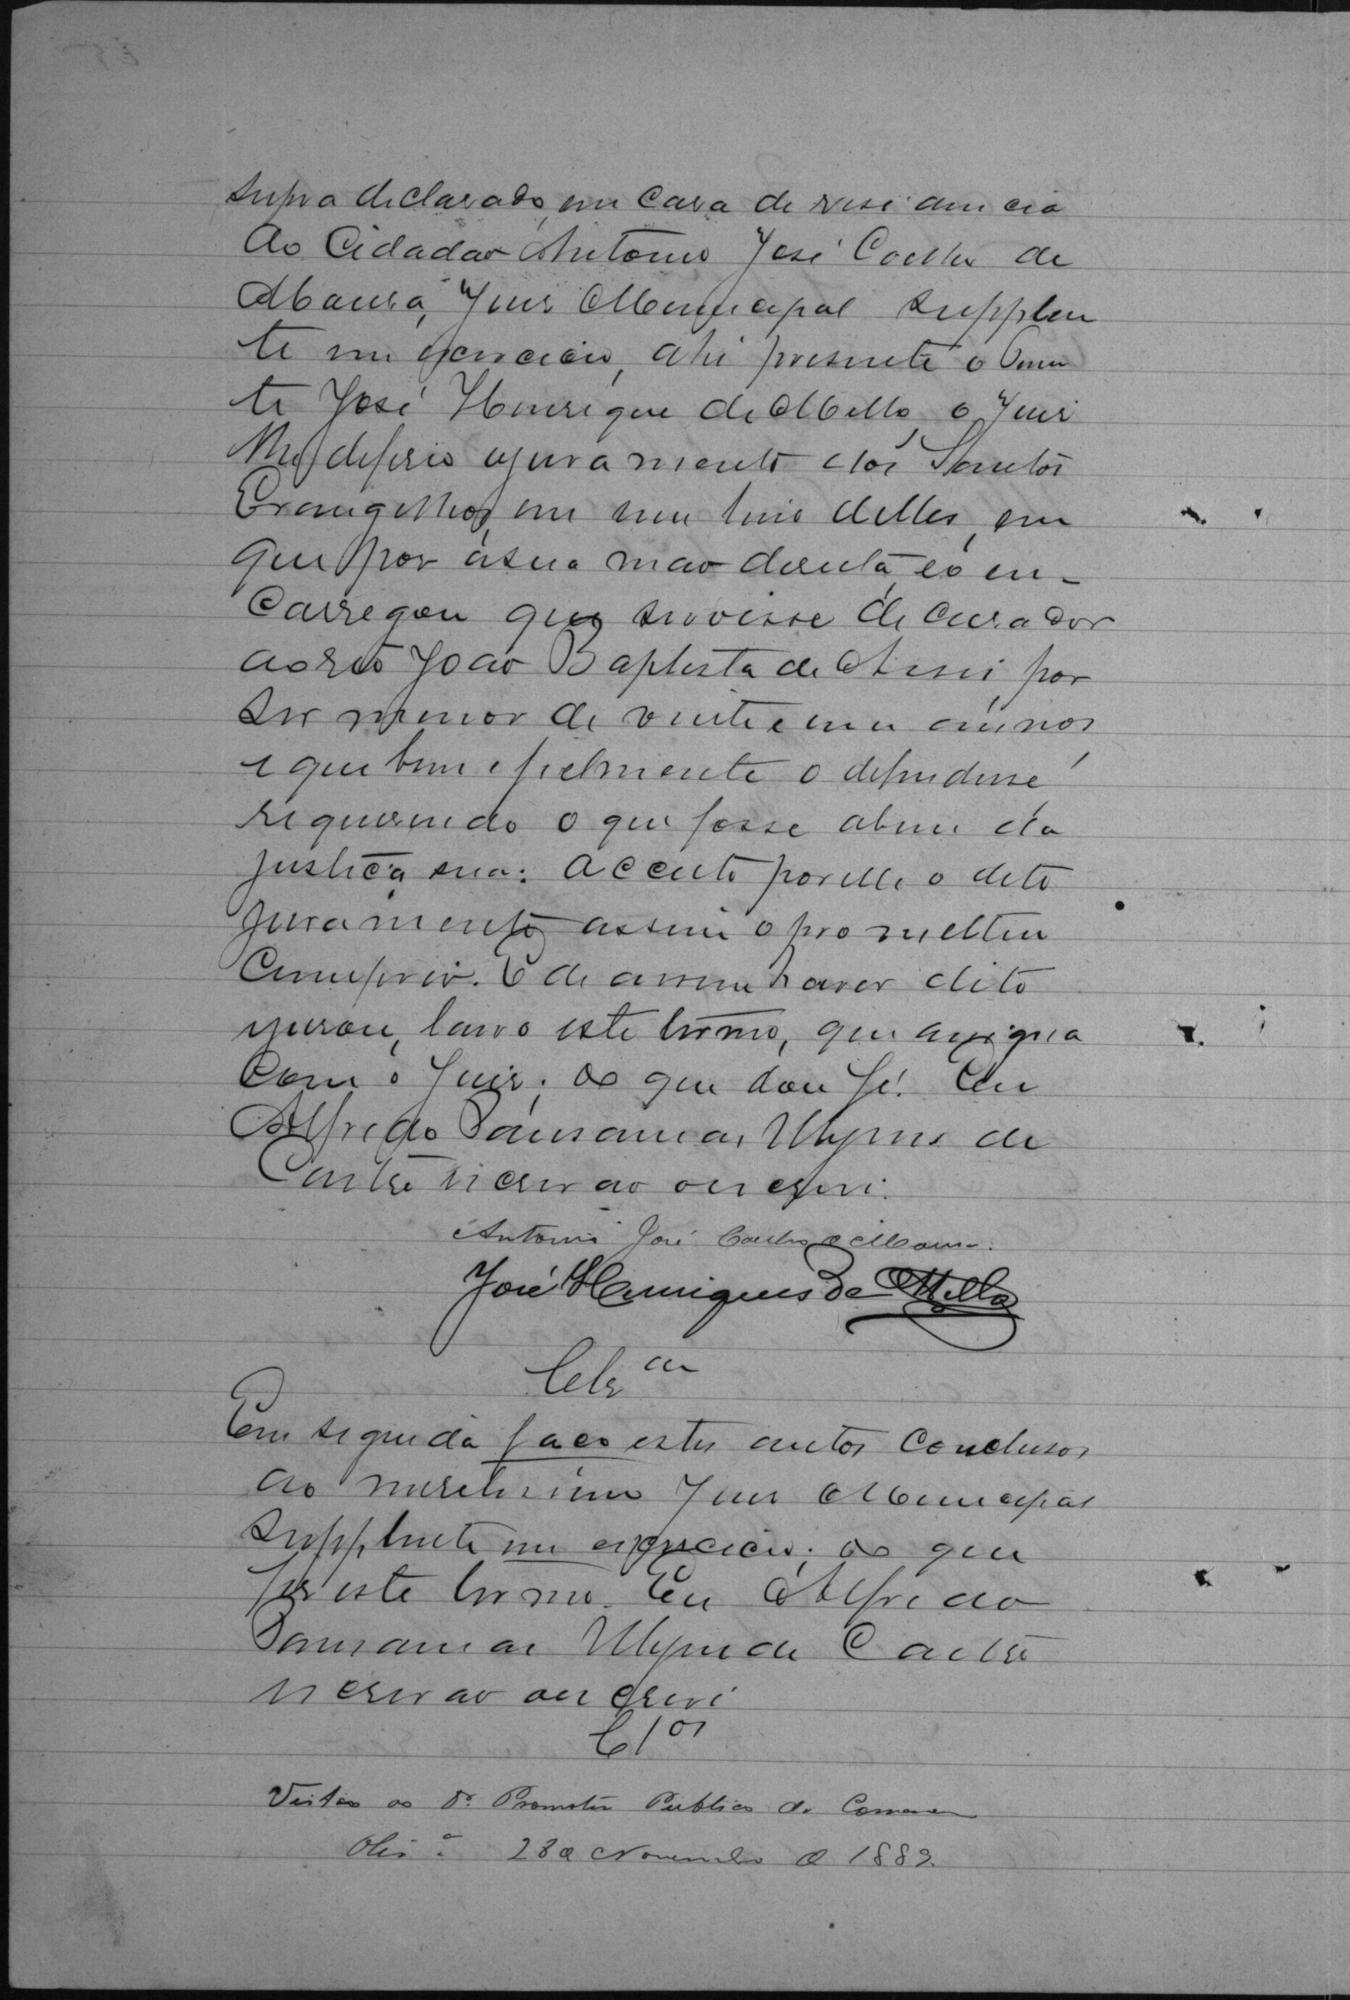 supra declarado, em casa de residencia
do Cidadão Antonio José Coelho de
Moura, Juiz Municipal Supplen
te em exercicio, ahi presente o
te José Henrique de Mello, o Juiz
lhe deferio ojuramento dos Santos
Evangelhos, em um livro delles, em
que pôr ásua mão direita, eo en-
Carregou que servisse de curador
ao réo João Baptista de Assis por
ser menor de vinte e um annos
e que bem e fielmente o defendesse
requerendo o que fosse abem da
justiça sua: acceito por elle o dito
juramento assim o prometteu
Cumprir. E de assim haver dito
ejurou, lavro este termo, que assigna
Com o Juiz; do que dou fé. Eu
Alfredo Pausanias Ulysses de
Castro escrivão o escrevi.
Antonio José Coelho de Moura.
José Henriques de Mello
Clzam
Em seguida faço estes autos Conclusos
ao meretissimo Juiz Municipal
Supplente em exercicio; do que
fiz este termo. Eu Alfredo
Pausanias Ulysses de Castro
escrivão o escrevi
Clos
Vistas ao Dr. Promotor Publico da Comarca
28 de Novembro de 1889.